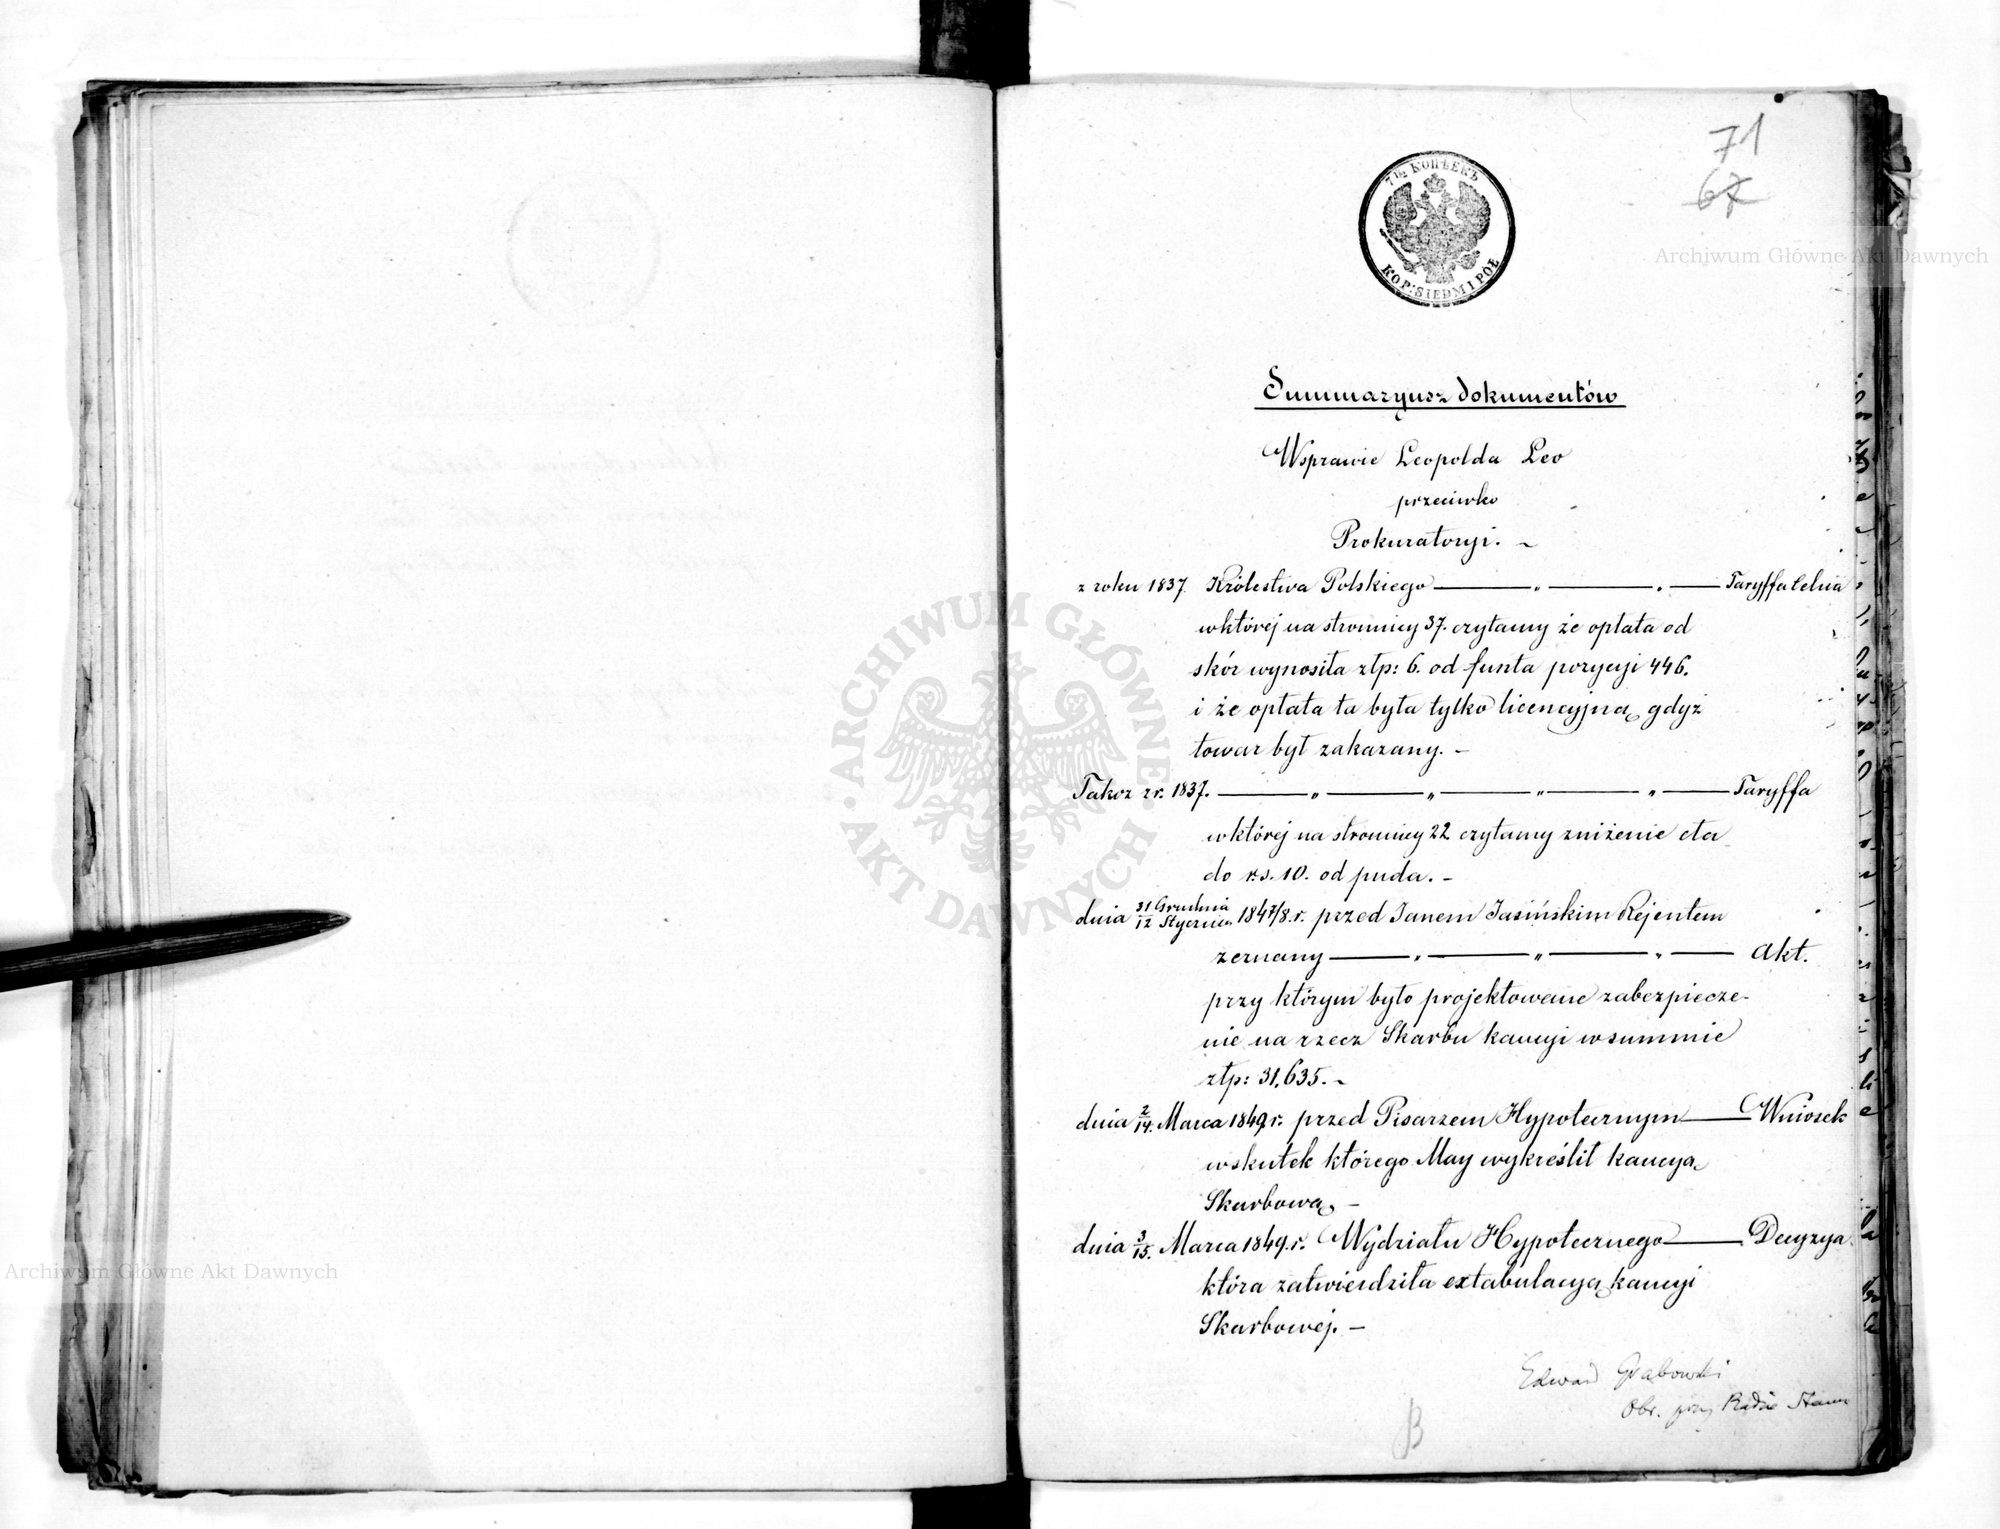 71
67
7 1/2 КОПѢЕКЪ
KOP: SIEDM I PÓŁ
Archiwum Główne Akt Dawnych
Summaryusz dokumentów
Wsprawie Leopolda Leo
przeciwko
Prokuratoryi. ~
z roku 1837. Królestwa Polskiego — „ — „ — Taryffa celna
wktórej na stronnicy 37. czytamy że opłata od
skór wynosiła złp: 6. od funta pozycyi 446.
i że opłata ta była tylko licencyjną, gdyż
towar był zakazany. –
Takoż z r. 1837. — „ — „ — „ — „ — Taryffa
wktórej na stronnicy 22 czytamy zniżenie cła
do r.s. 10. od puda. –
dnia 31 Grudnia/12 Stycznia 1847/8. r. przed Janem Jasińskim Rejentem
zeznany — „ — „ — „ — Akt.
przy którym było projektowane zabezpiecze-
nie na rzecz Skarbu kaucyi wsummie
złp: 31,635. ~
dnia 2/14. Marca 1849 r. przed Pisarzem Hypotecznym — Wniosek
wskutek którego May wykreślił kaucyą
Skarbową, –
dnia 3/15. Marca 1849. r. Wydziału Hypotecznego — Decyzya
która zatwierdziła extabulacyą kaucyi
Skarbowej. –
Edward Grabowski
Obr. przy Radzie Stanu
ARCHIWUM GŁÓWNE
AKT DAWNYCH
Archiwum Główne Akt Dawnych